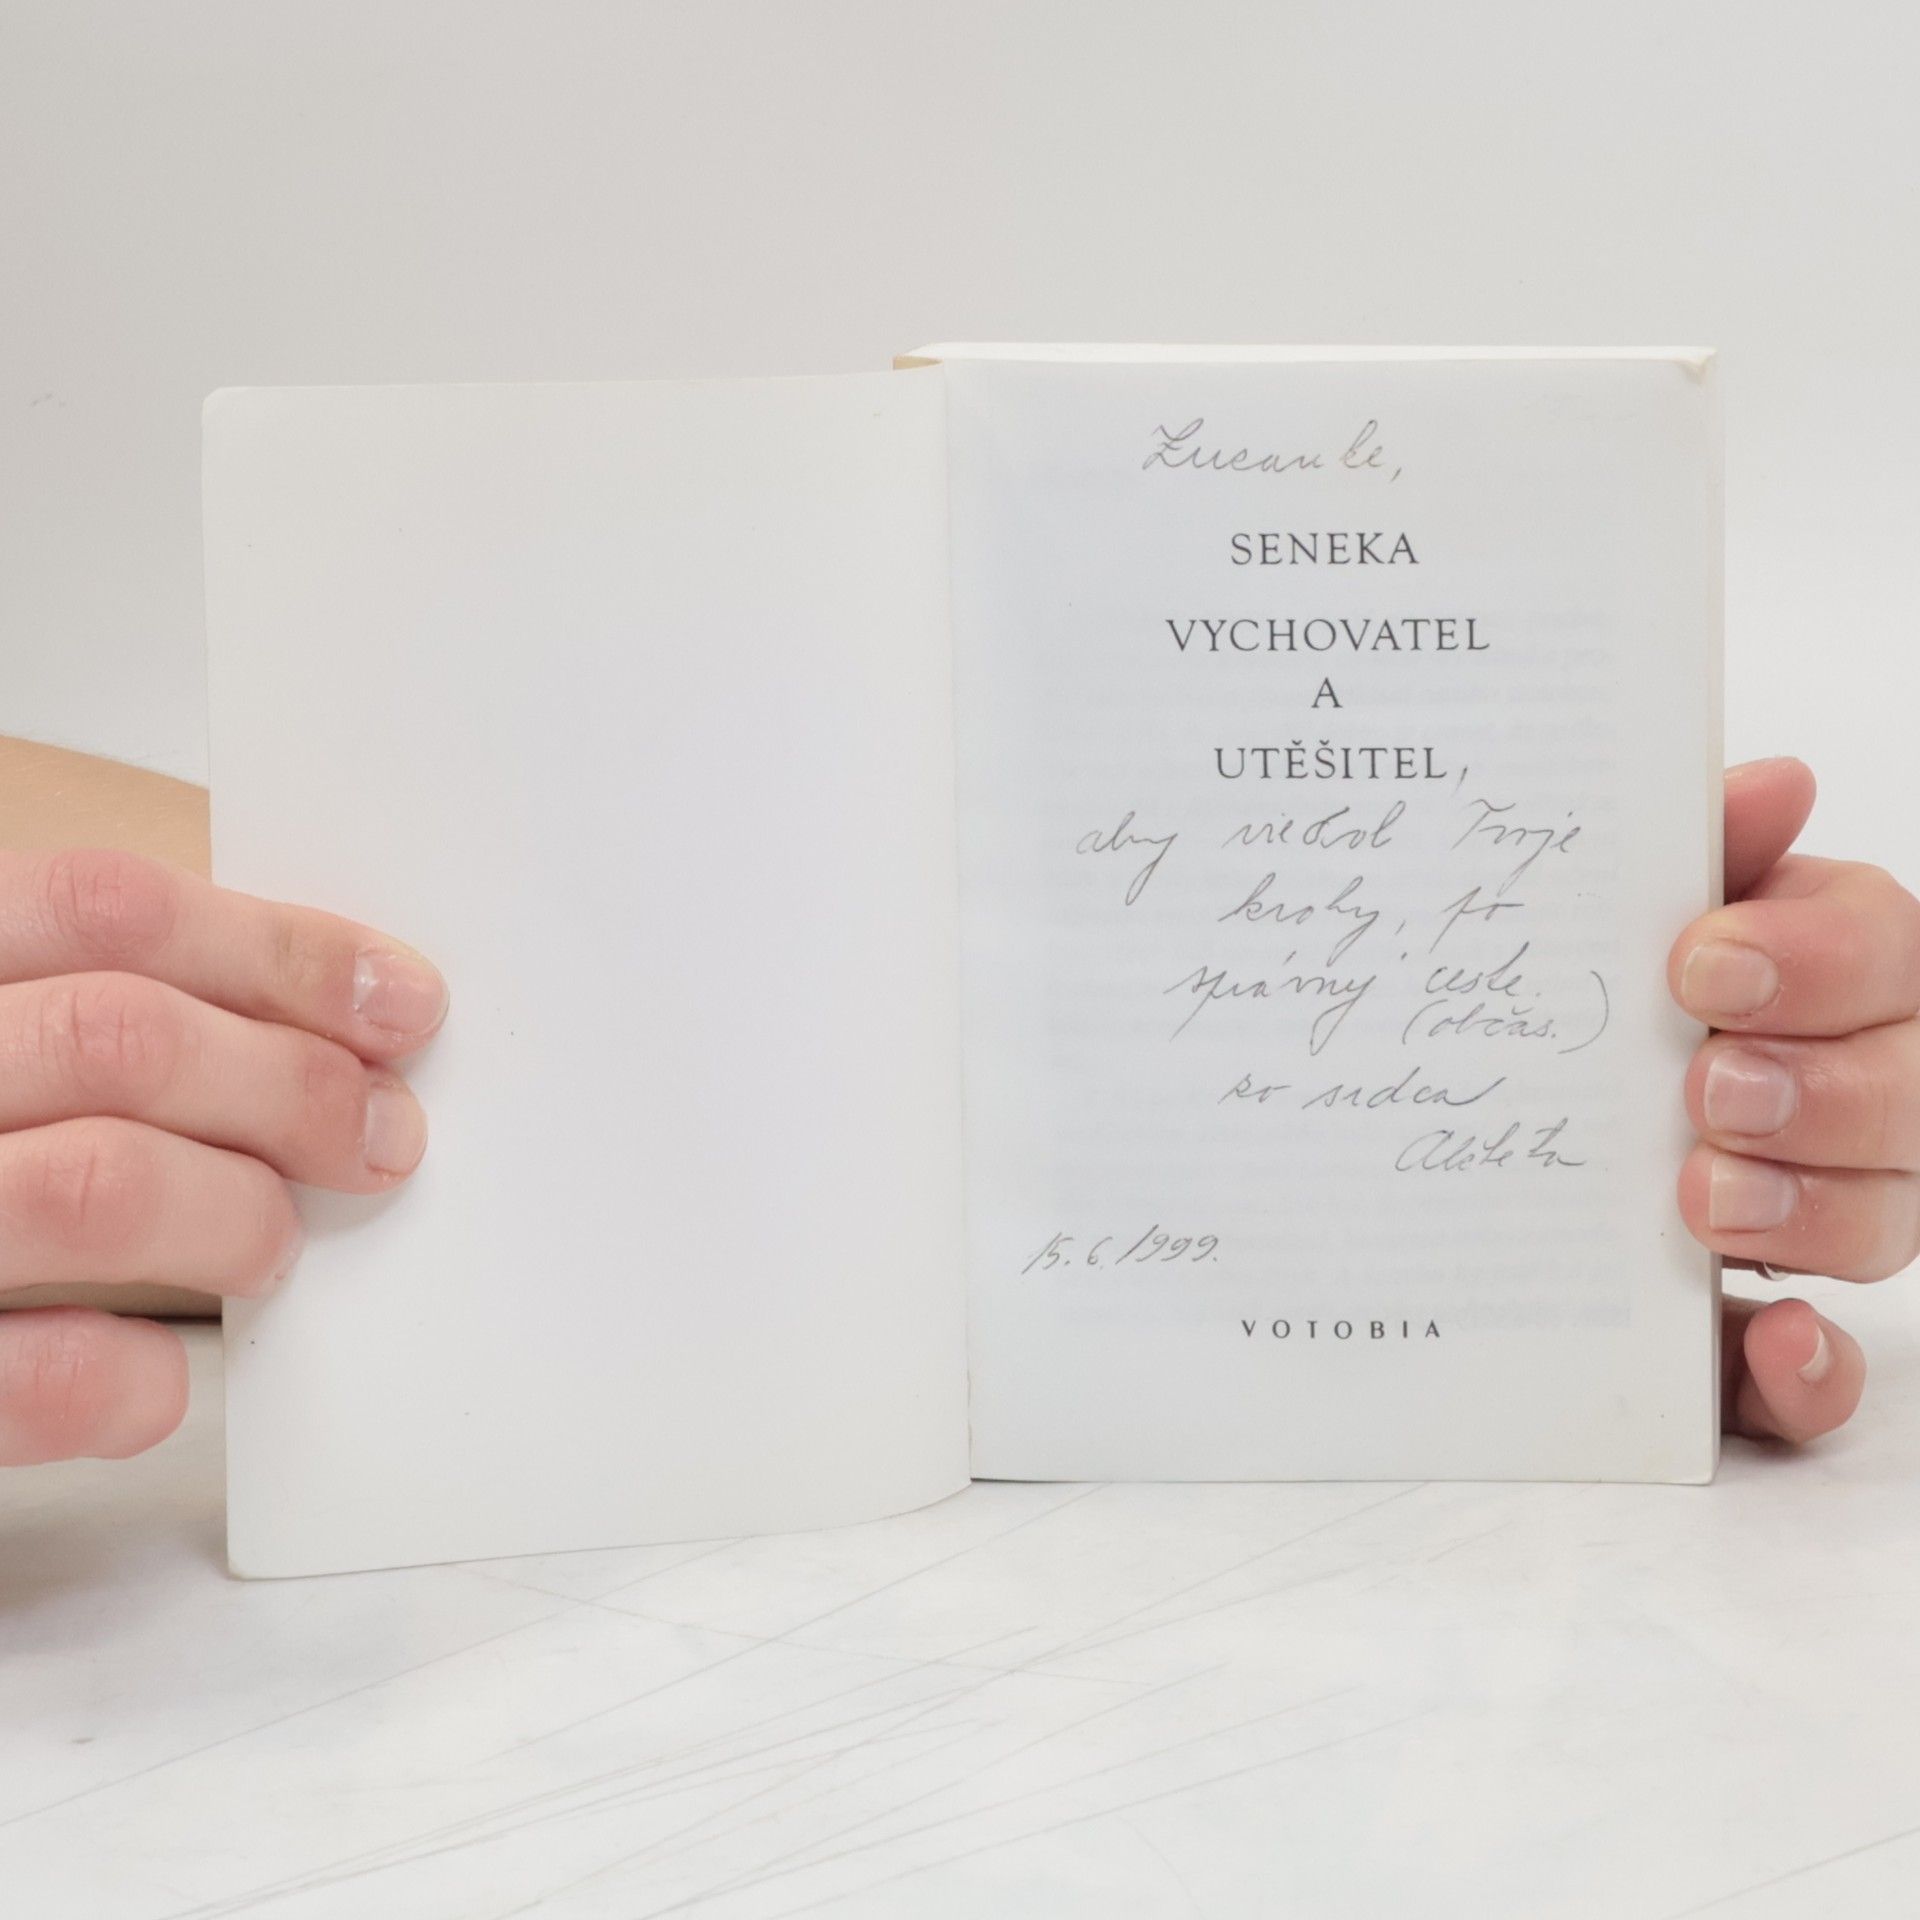 Zucanke,
SENEKA
VYCHOVATEL
A
UTĚŠITEL,
aby viedol Tvoje
kroky, po
správnej ceste.
(občas.)
zo srdca
15.6.1999.
VOTOBIA